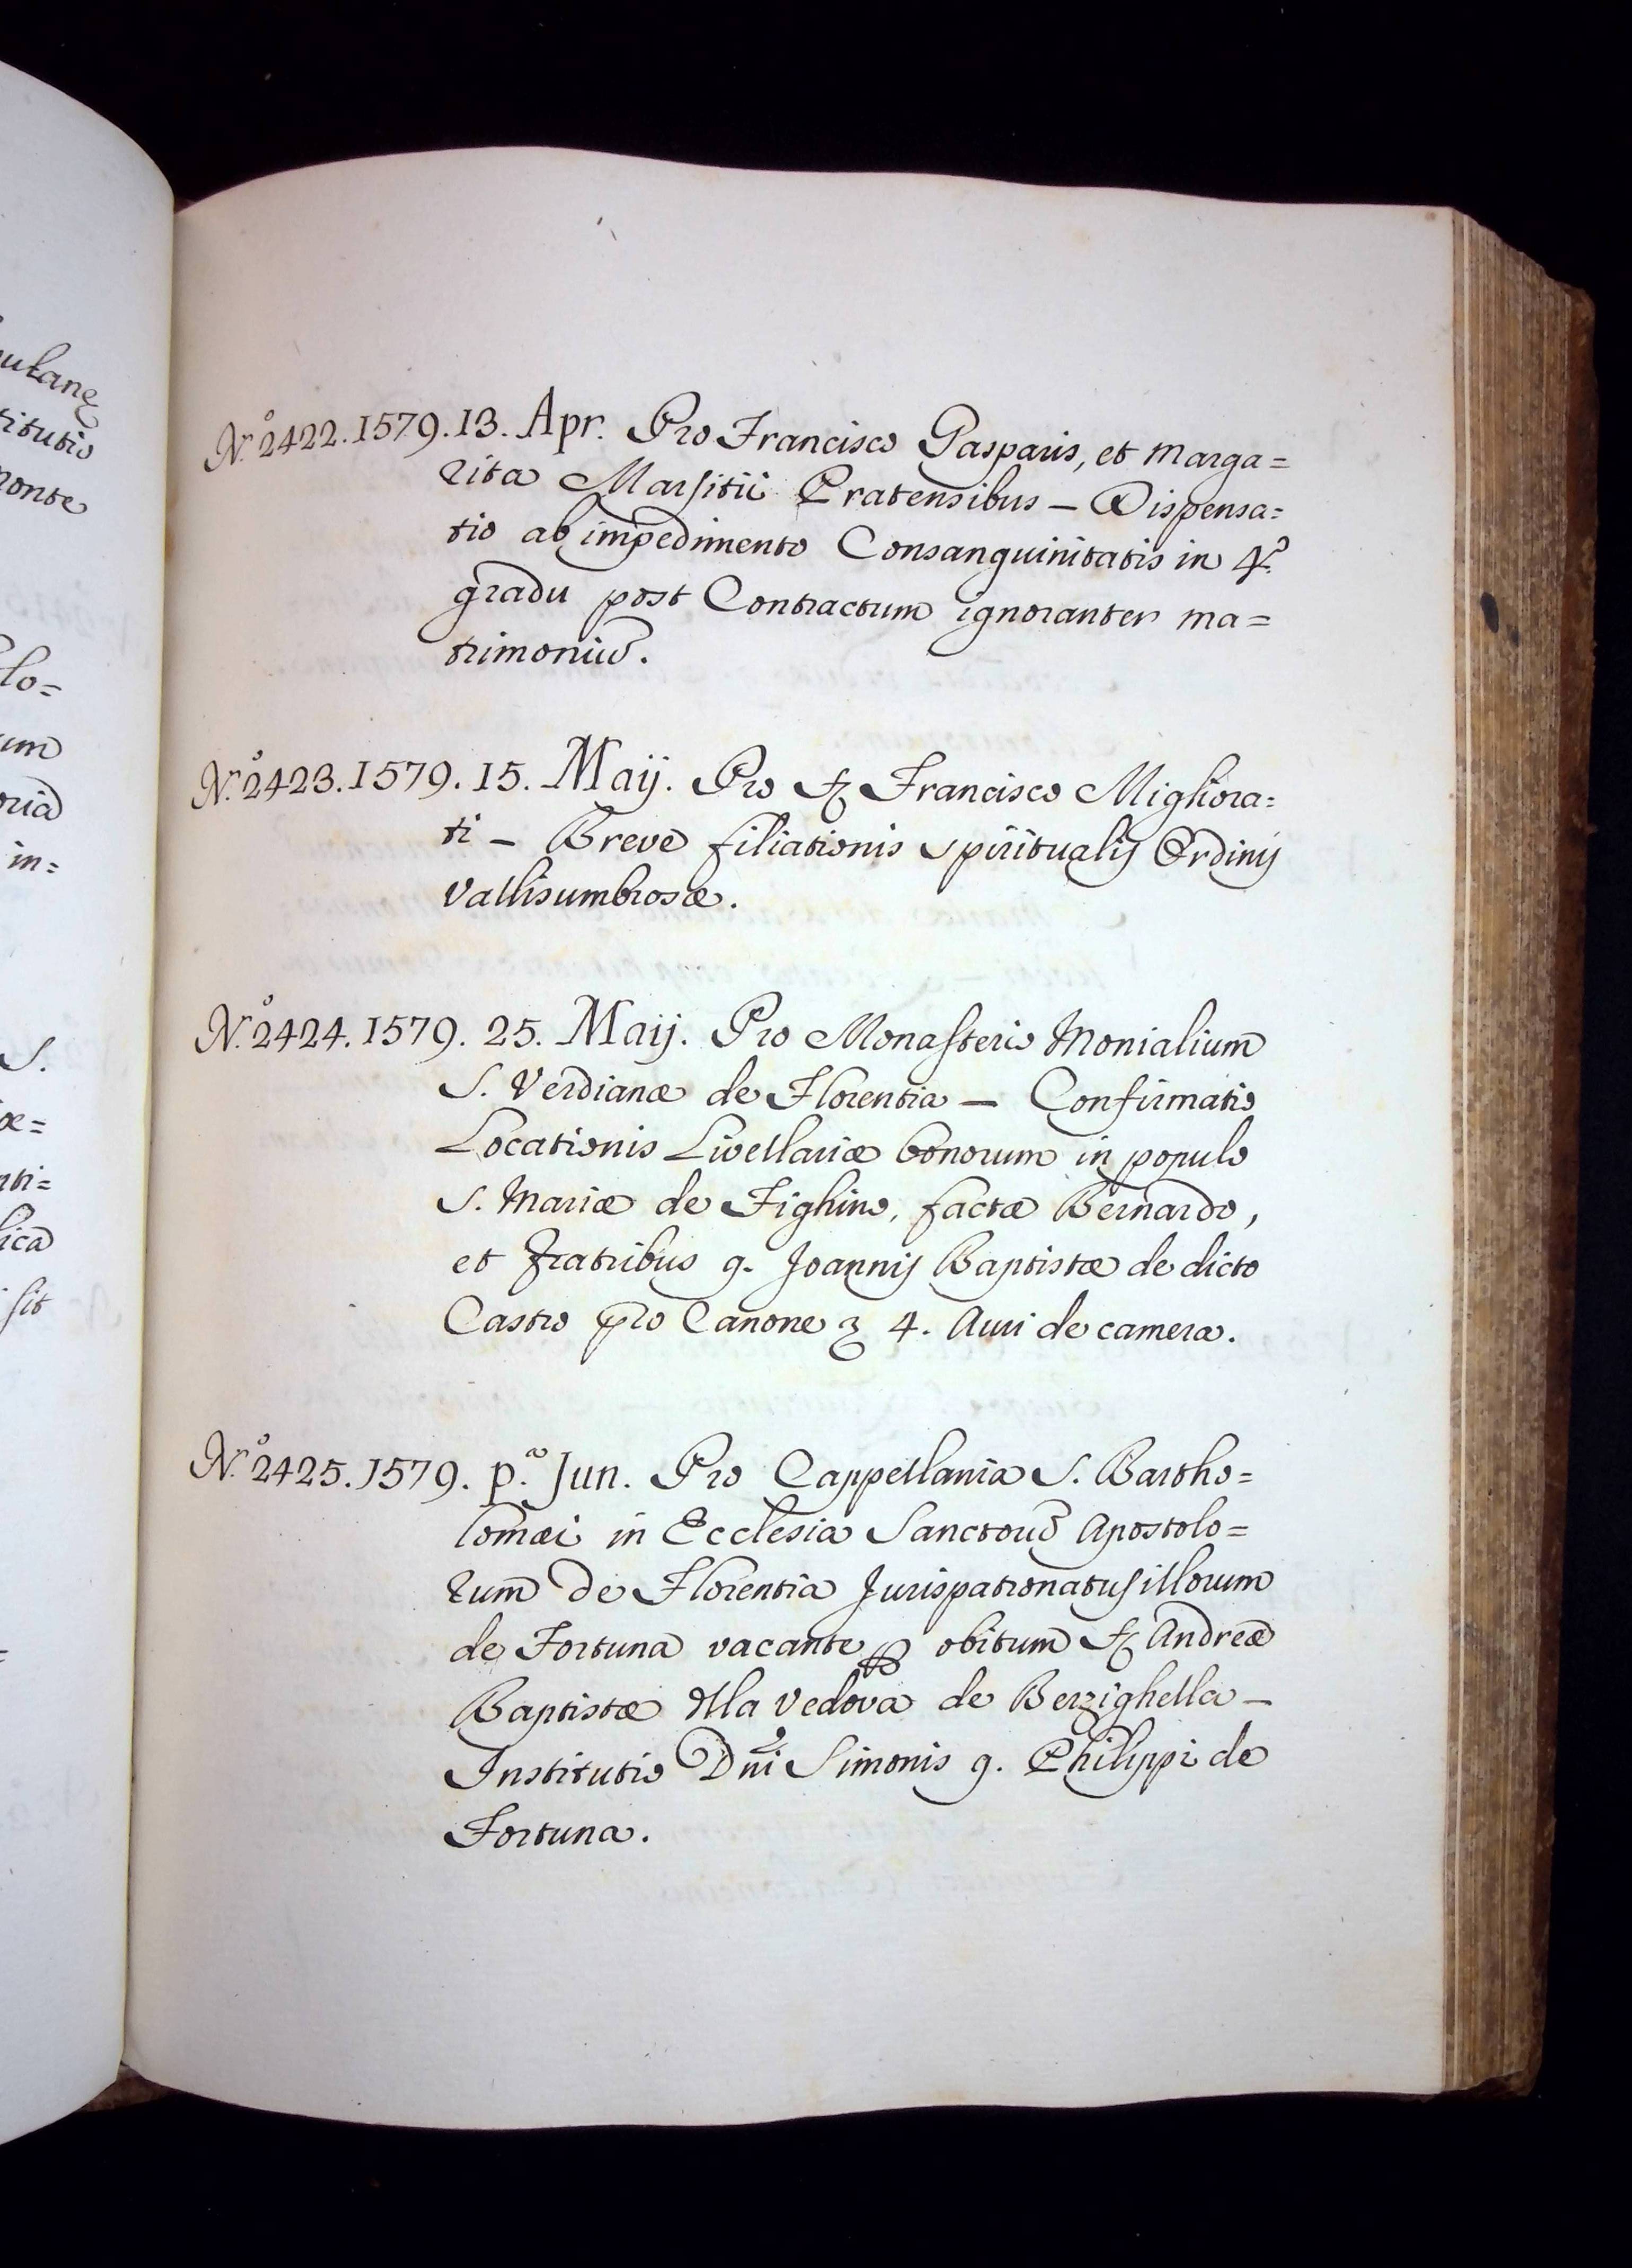 ulane
titutio
monte
lo=
um
oria
in=
S.
œ=
nti=
lica
sit
N.º 2422. 1579. 13. Apr. Pro Francisco Gasparis, et Marga=
rita Marsitii Pratensibus – Dispensa=
tio ab impedimento Consanguinitatis in 4.º
gradu post Contractum ignoranter ma=
trimoniũ.
N.º 2423. 1579. 15. Maij. Pro Francisco Migliora=
ti – Breve filiationis spiritualis Ordinis
Vallisumbrosæ.
N.º 2424. 1579. 25. Maij. Pro Monasterio Monialium
S. Verdianæ de Florentia – Confirmatio
Locationis Livellariæ bonorum in populo
S. Mariæ de Fighino, factæ Bernardo,
et Fratribus q. Joannis Baptistæ de dicto
Castro pro Canone 4. Auri de camera.
N.º 2425. 1579. p.ª Jun. Pro Cappellania S. Bartho=
lomæi in Ecclesia Sanctorũ Apostolo=
rum de Florentia Jurispatronatus illorum
de Fortuna vacante obitum Andreæ
Baptistæ della Vedova de Berzighella –
Institutio Dñi Simonis q. Philippi de
Fortuna.